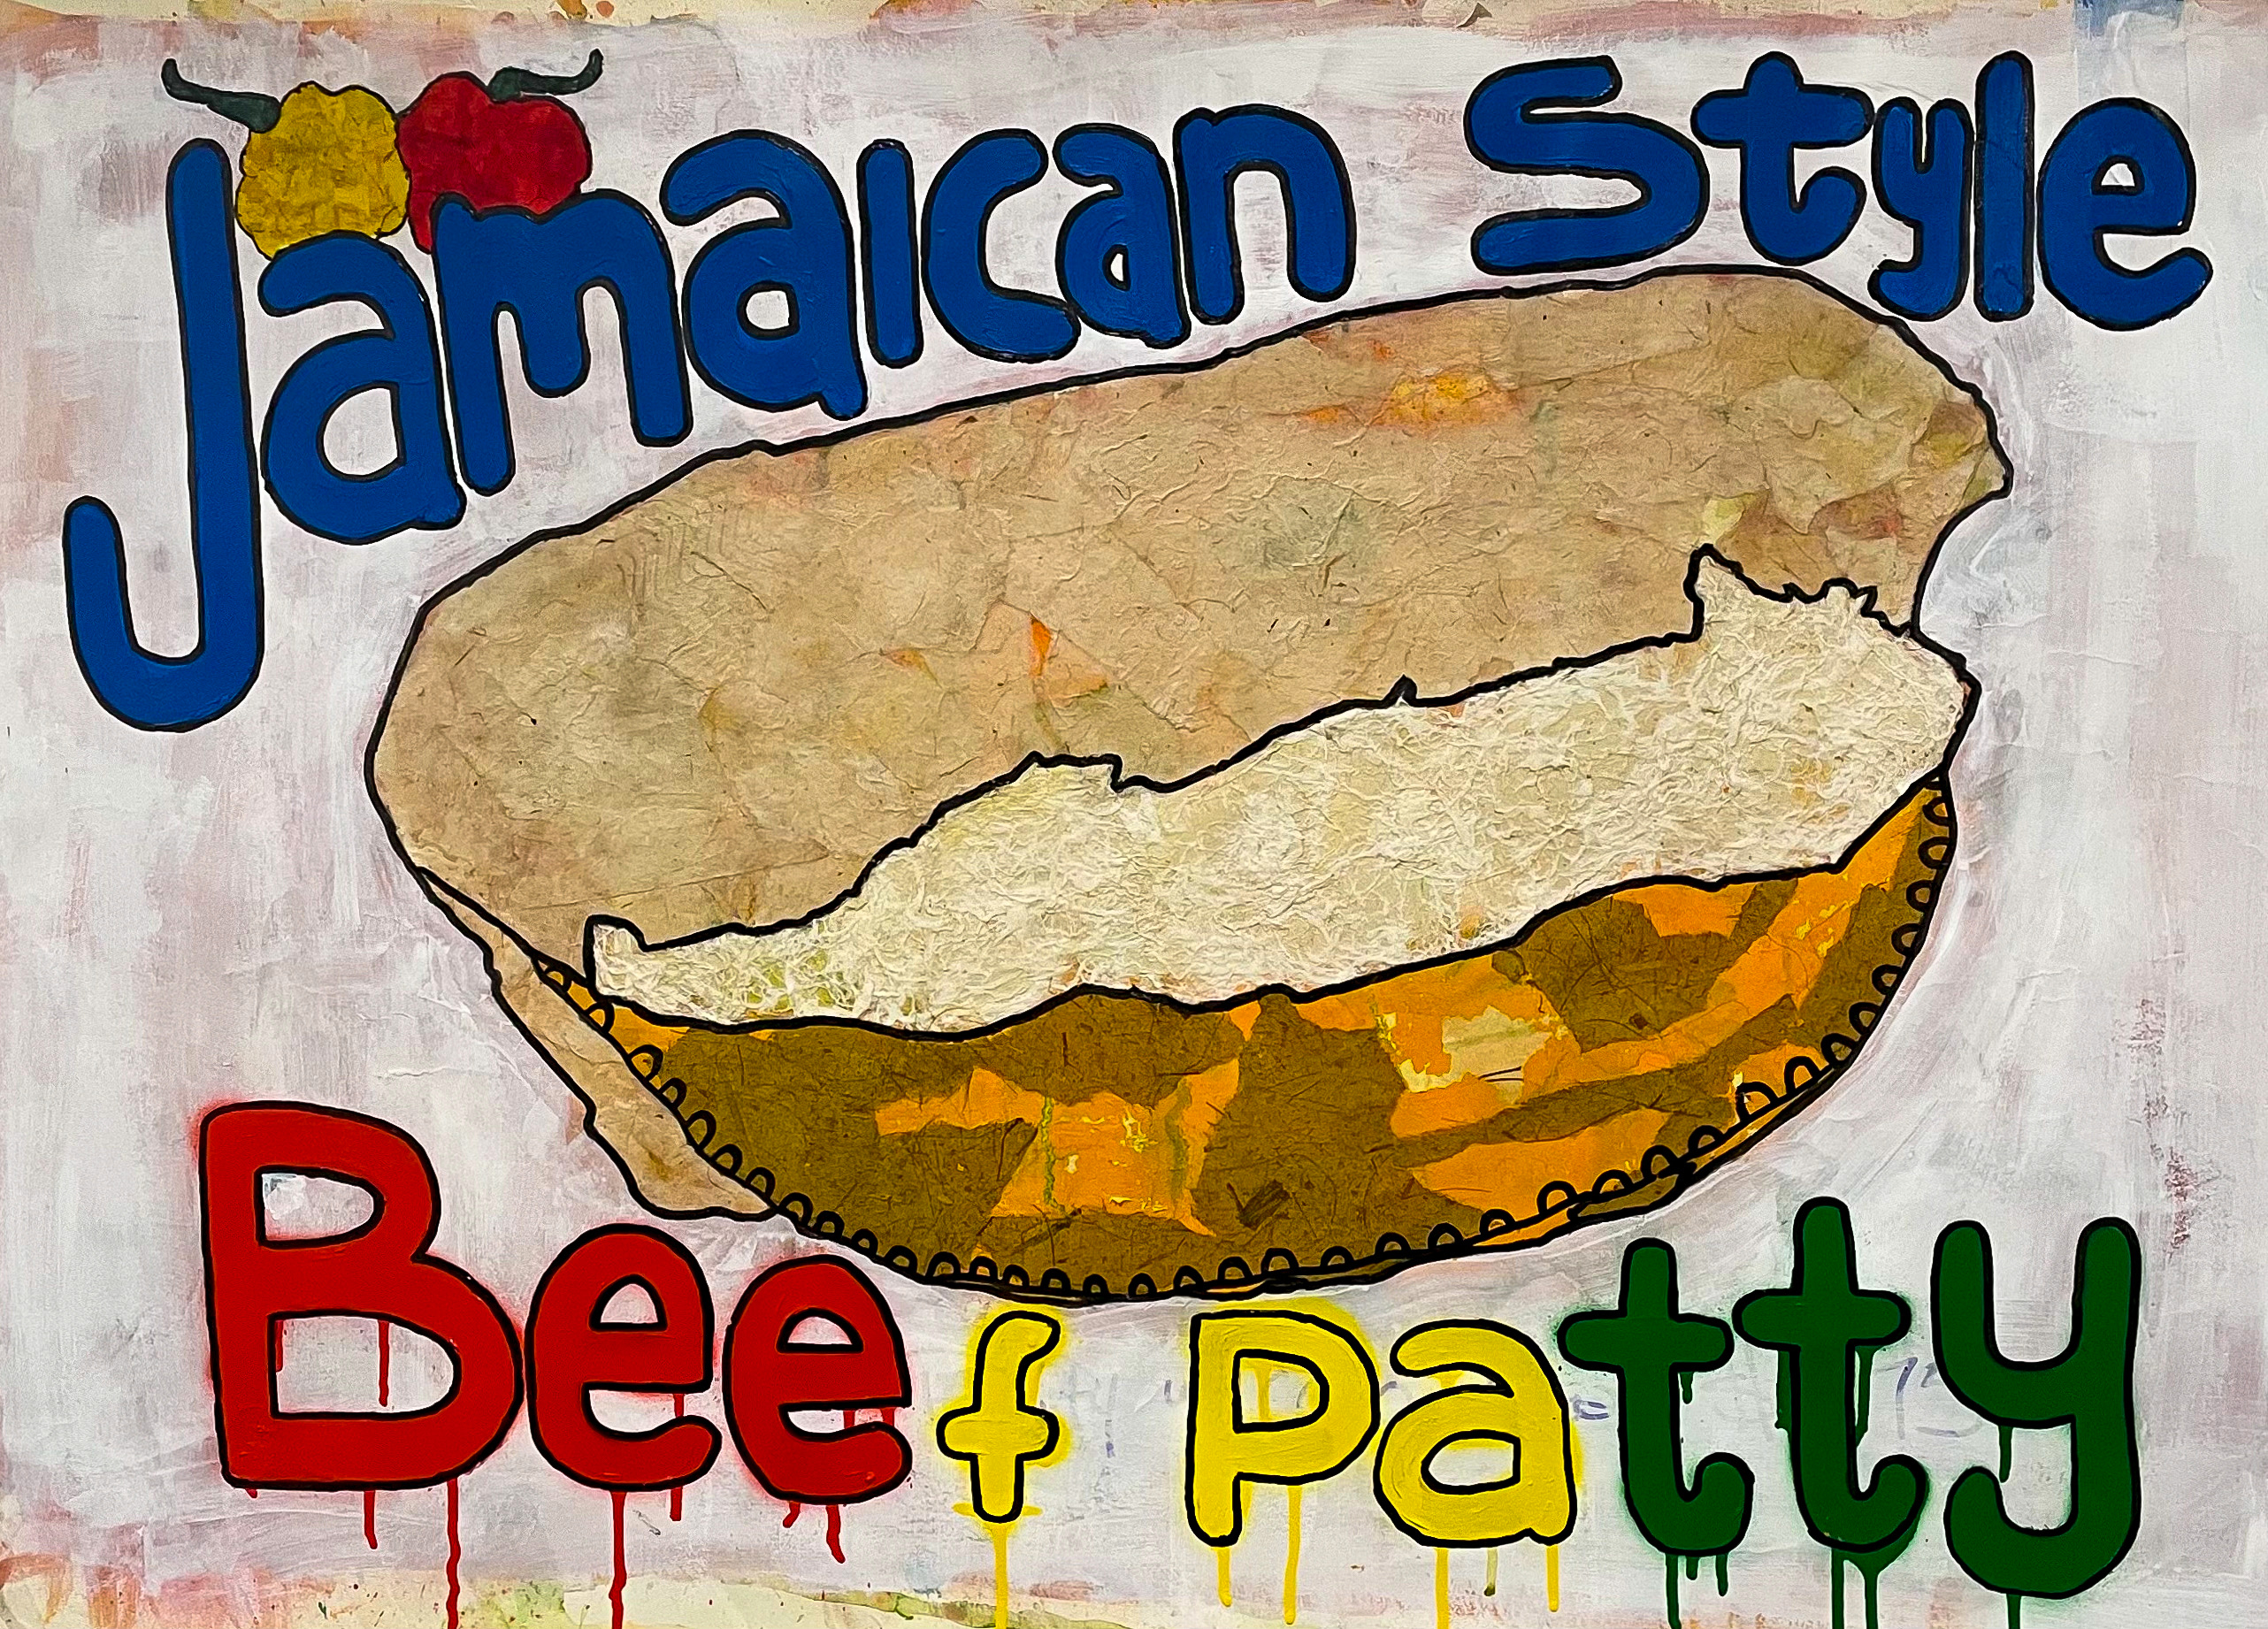 Jamaican Style
Beef Patty